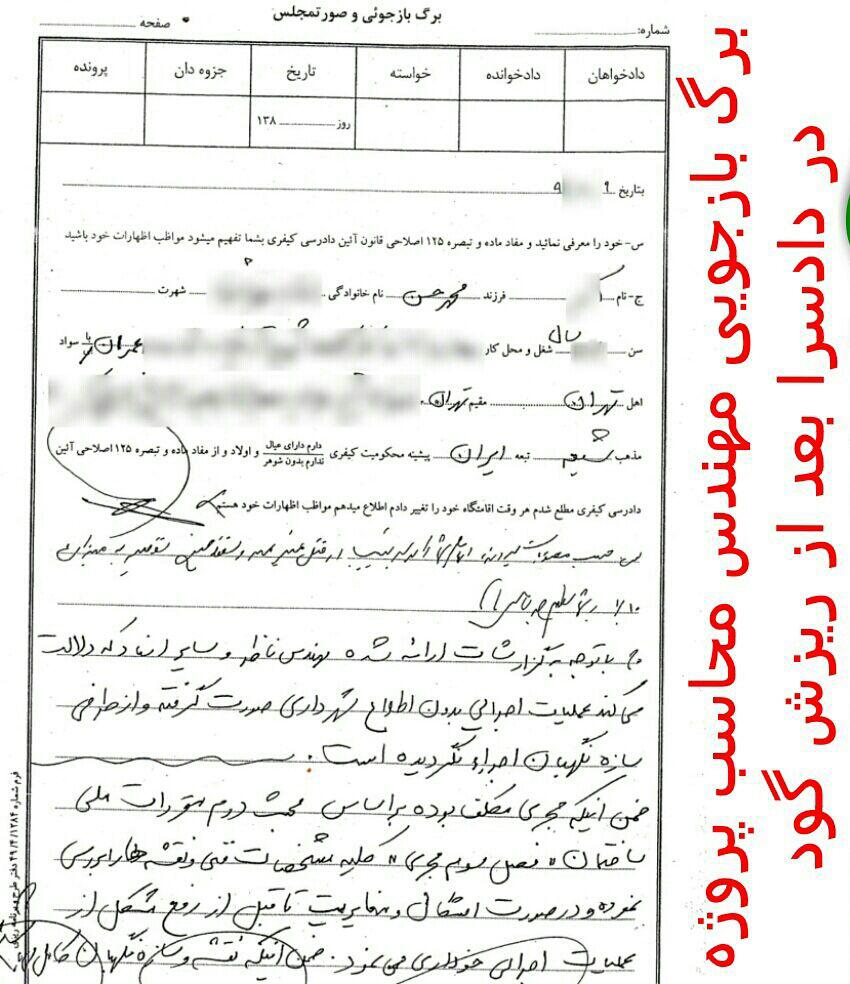 برگ بازجوئی و صورتمجلس
صفحه
شماره:
دادخواهان دادخوانده خواسته تاریخ جزوه دان پرونده
روز ۱۳۸
بتاریخ ۹ ۹
س-خود را معرفی نمائید و مفاد ماده و تبصره ۱۲۵ اصلاحی قانون آئین دادرسی کیفری بشما تفهیم میشود مواظب اظهارات خود باشید
ج-نام فرزند محمدحسن نام خانوادگی شهرت
سن سال شغل و محل کار عمران با سواد
اهل تهران مقیم تهران
مذهب شیعه تبعه ایران پیشینه محکومیت کیفری دارم دارای عیال و اولاد و از مفاد ماده و تبصره ۱۲۵ اصلاحی آئین
ندارم بدون شوهر
دادرسی کیفری مطلع شدم هر وقت اقامتگاه خود را تغییر دادم اطلاع میدهم مواظب اظهارات خود هستم
ج باتوجه به گزارشات ارائه شده مهندس ناظر و سایر اسناد که دلالت
می کند عملیات اجرایی بدون اطلاع شهرداری صورت گرفته و از طرفی
سازه نگهبان اجراء نگردیده است.
ضمن اینکه مجری مکلف بوده براساس مبحث دوم مقررات ملی
ساختمان «فصل سوم مجری» کلیه مشخصات فنی و نقشه ها را بررسی
نموده و در صورت اشکال و مغایریت تا قبل از رفع مشکل از
عملیات اجرایی خودداری می نمود. ضمن اینکه نقشه و سازه نگهبان کامل
فرم شماره ۴۹/۴/۱۲۸۴ دفتر طرح و برنامه ریزی
برگ بازجویی مهندس محاسب پروژه
در دادسرا بعد از ریزش گود